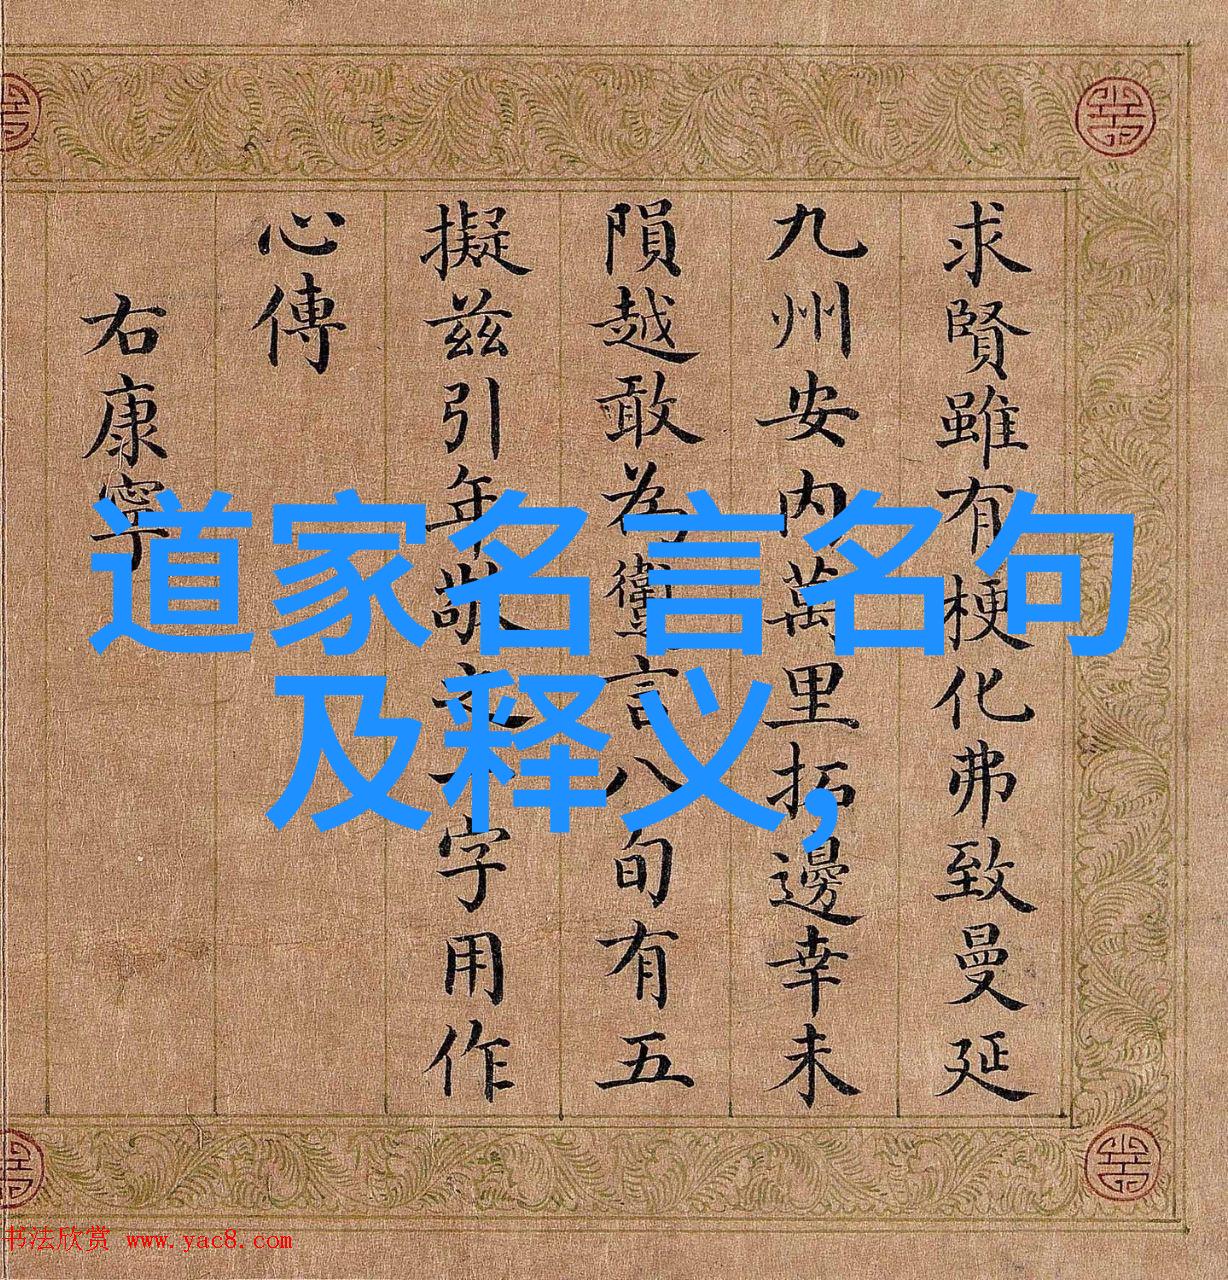 求賢雖有梗化弗致曼延
九州安内萬里拓邊幸未
隕越敢為言八旬有五
擬兹引年敬之一字用作
心傳
右康寧
道家名言名句
及释义,
书法欣赏 www.yac8.com